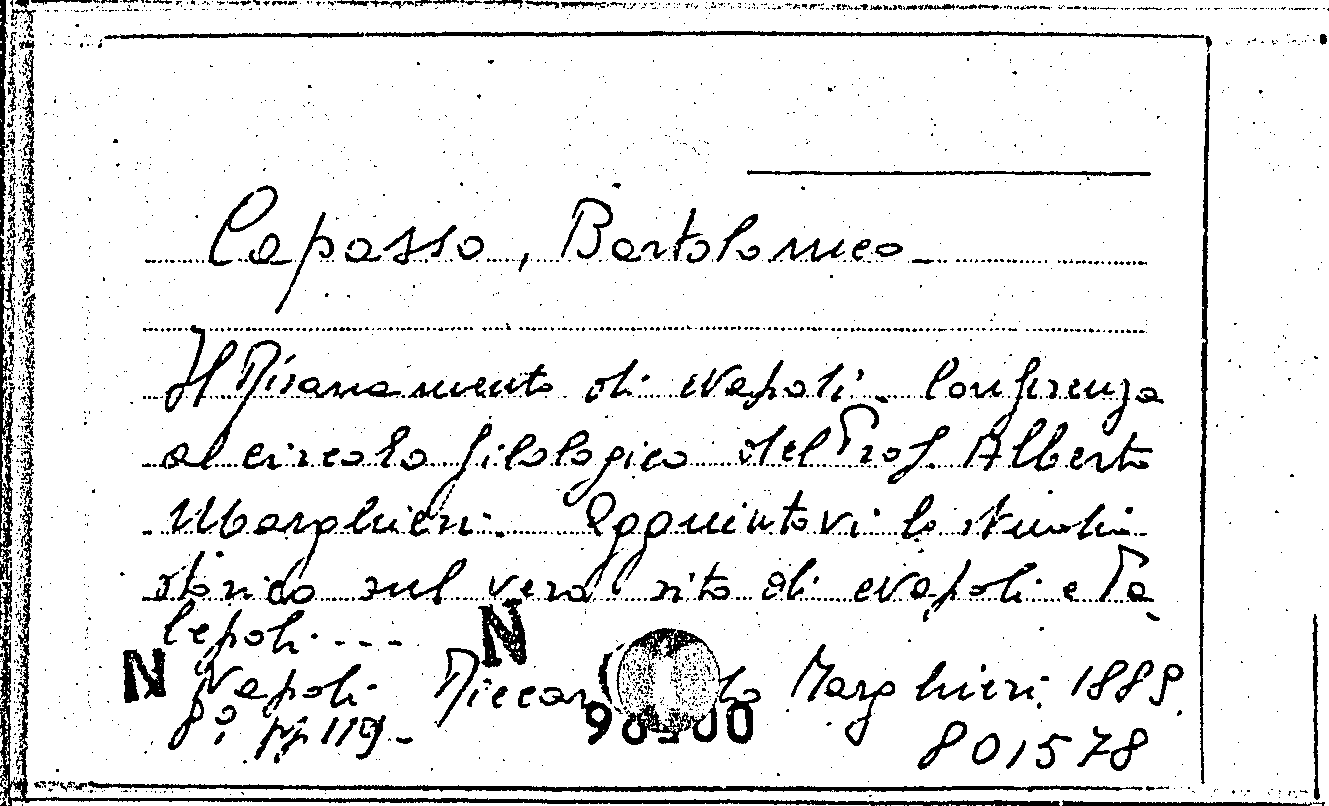 Capasso, Bartolomeo
Il Risanamento di Napoli. Conferenza
al circolo filologico del Prof. Alberto
Marghieri. Aggiuntovi lo studio
storico sul vero sito di Napoli e Pa-
lepoli....
N N
Napoli Marghieri. 1889.
8° pp 119.
801578